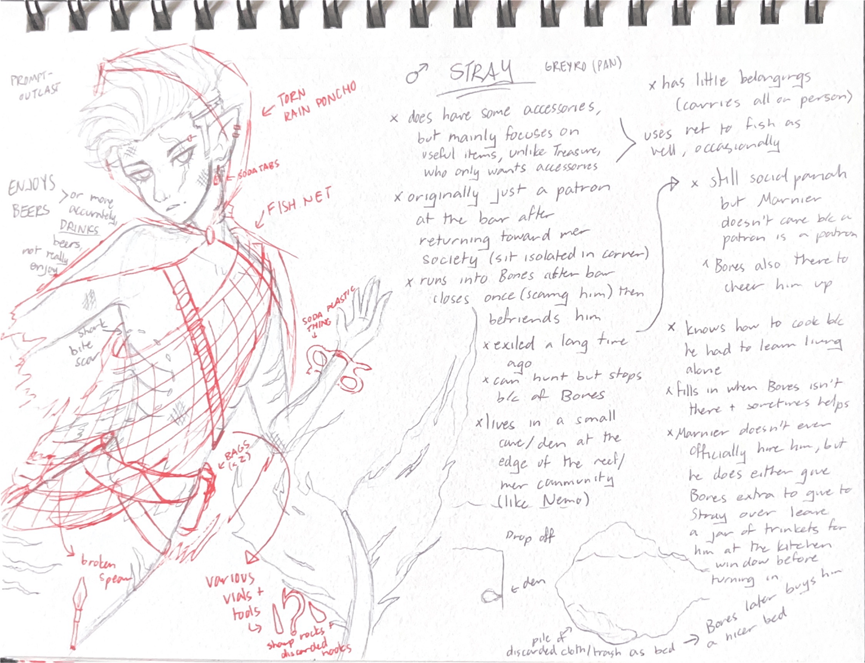 PROMPT-
OUTCAST
♂ STRAY GREYRO (PAN)
TORN
RAIN PONCHO
SODA TABS
FISH NET
ENJOYS
BEERS
> or more
accurately,
DRINKS
beers,
not really
enjoy
shark
bite
scar
SODA PLASTIC
THING
BAGS
(x2)
broken
spear
VARIOUS
VIALS +
TOOLS
sharp rocks
discarded hooks
x does have some accessories,
but mainly focuses on
useful items, unlike Treasure,
who only wants accessories
x originally just a patron
at the bar after
returning toward mer
society (sit isolated in corner)
x runs into Bones after bar
closes once (scaring him) then
befriends him
x exiled a long time
ago
x can hunt but stops
b/c of Bones
x lives in a small
cave/den at the
edge of the reef/
mer community
(like Nemo)
x has little belongings
(carries all on person)
uses net to fish as
well, occasionally
x still social pariah
but Marnier
doesn't care b/c a
patron is a patron
x Bones also there to
cheer him up
x knows how to cook b/c
he had to learn living
alone
x fills in when Bones isn't
there + sometimes helps
x Marnier doesn't even
officially hire him, but
he does either give
Bones extra to give to
Stray over leave
a jar of trinkets for
him at the kitchen
window before
turning in
Drop off
den
pile of
discarded cloth/trash as bed → Bones later buys him
a nicer bed